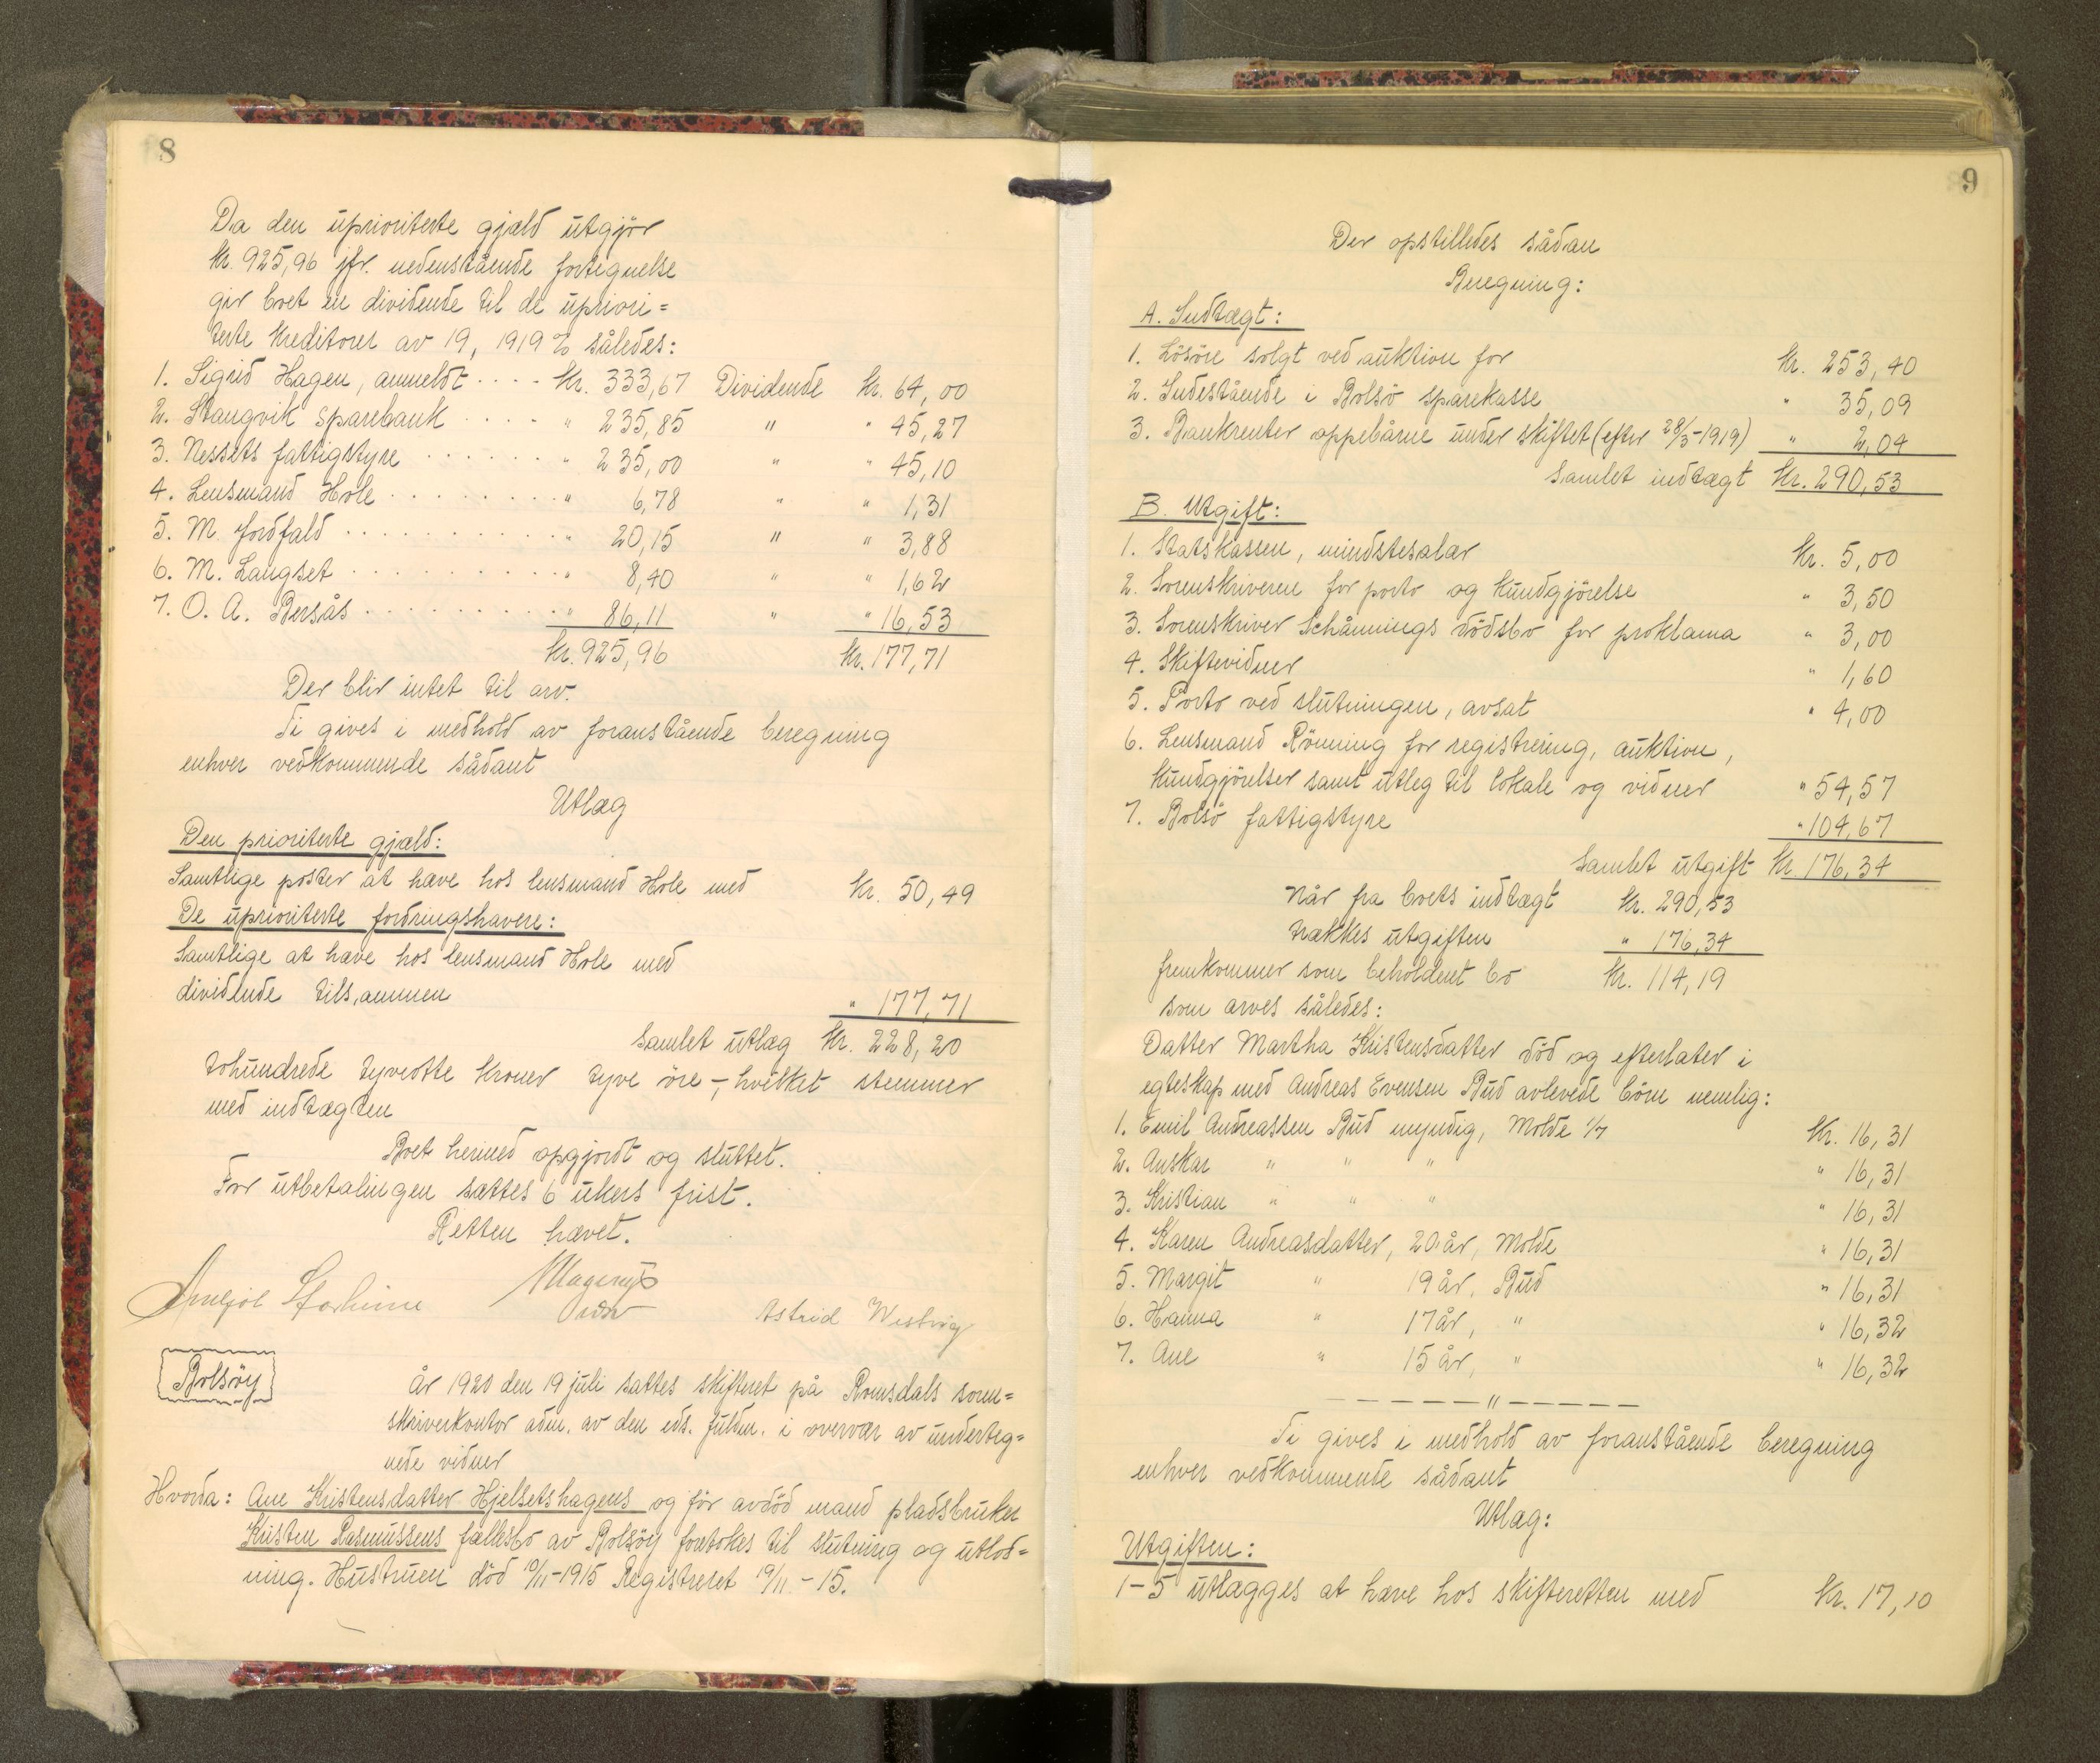 8
Da den uprioriterte gjæld utgjör
Kr. 925,96 jfr. nedenstående fortegnelse
gir boet en dividende til de upriori=
terte kreditorer av 19,1919 % således:
1. Sigrid Hagen, anmeldt .... Kr. 333,67 Dividende Kr. 64,00
2. Stangvik sparebank ..... " 235,85 " " 45,27
3. Nessets fattigstyre ...... " 235,00 " " 45,10
4. Lensmand Hole ........ " 6,78 " " 1,31
5. M. Jordfald .......... " 20,15 " " 3,88
6. M. Langset .......... " 8,40 " " 1,62
7. O. A. Bersås .......... " 86,11 " " 16,53
Kr. 925,96 Kr. 177,71
Der blir intet til arv.
Ti gives i medhold av foranstående beregning
enhver vedkommende sådant
Utlæg
Den prioriterte gjæld:
Samtlige poster at hæve hos lensmand Hole med Kr. 50,49
De uprioriterte fordringshavere:
Samtlige at hæve hos lensmand Hole med
dividende tilsammen " 177,71
Samlet utlæg Kr. 228,20
tohundrede tyveotte kroner tyve öre -, hvilket stemmer
med indtægten
Boet hermed opgjordt og sluttet.
For utbetalingen sattes 6 ukers frist.
Retten hævet.
Astrid Westvig
Bolsöy
År 1920 den 19 juli sattes skifteret på Romsdals soren=
skriverkontor adm. av den eds. fuldm. i overvær av underteg=
nede vidner
Hvorda: Ane Kristensdatter Hjelsetshagens og för avdöd mand pladsbruker
Kristen Rasmussens fællesbo av Bolsöy foretokes til slutning og utlod=
ning. Hustruen död 10/11-1915 Registreret 19/11-15.
9
Der opstilledes sådan
Beregning:
A. Indtægt:
1. Lösöre solgt ved auktion for Kr. 253,40
2. Indestående i Bolsö sparekasse " 35,09
3. Bankrenter oppebårne under skiftet (efter 28/3-1919) " 2,04
Samlet indtægt Kr. 290,53
B. Utgift:
1. Statskassen, mindstesalær Kr. 5,00
2. Sorenskriveren for porto og kundgjörelse " 3,50
3. Sorenskriver Schånnings dödsbo for proklama " 3,00
4. Skiftevidner " 1,60
5. Porto ved slutningen, avsat " 4,00
6. Lensmand Rönning for registrering, auktion,
kundgjörelser samt utleg til lokale og vidner " 54,57
7. Bolsö fattigstyre " 104,67
Samlet utgift Kr. 176,34
Når fra boets indtægt Kr. 290,53
trækkes utgiften " 176,34
fremkommer som beholdent bo Kr. 114,19
som arves således:
Datter Martha Kristensdatter död og efterlater i
egteskap med Andreas Evensen Bud avlevede börn nemlig:
1. Emil Andreassen Bud myndig, Molde 1/7 Kr. 16,31
2. Anskar " " " " 16,31
3. Kristian " " " " 16,31
4. Karen Andreasdatter, 20 år, Molde " 16,31
5. Margit " 19 år, Bud " 16,31
6. Hanna " 17 år, " " 16,32
7. Ane " 15 år, " " 16,32
— — — — — — " — — — — —
Ti gives i medhold av foranstående beregning
enhver vedkommende sådant
Utlæg:
Utgiften:
1-5 utlægges at hæve hos skifteretten med Kr. 17,10